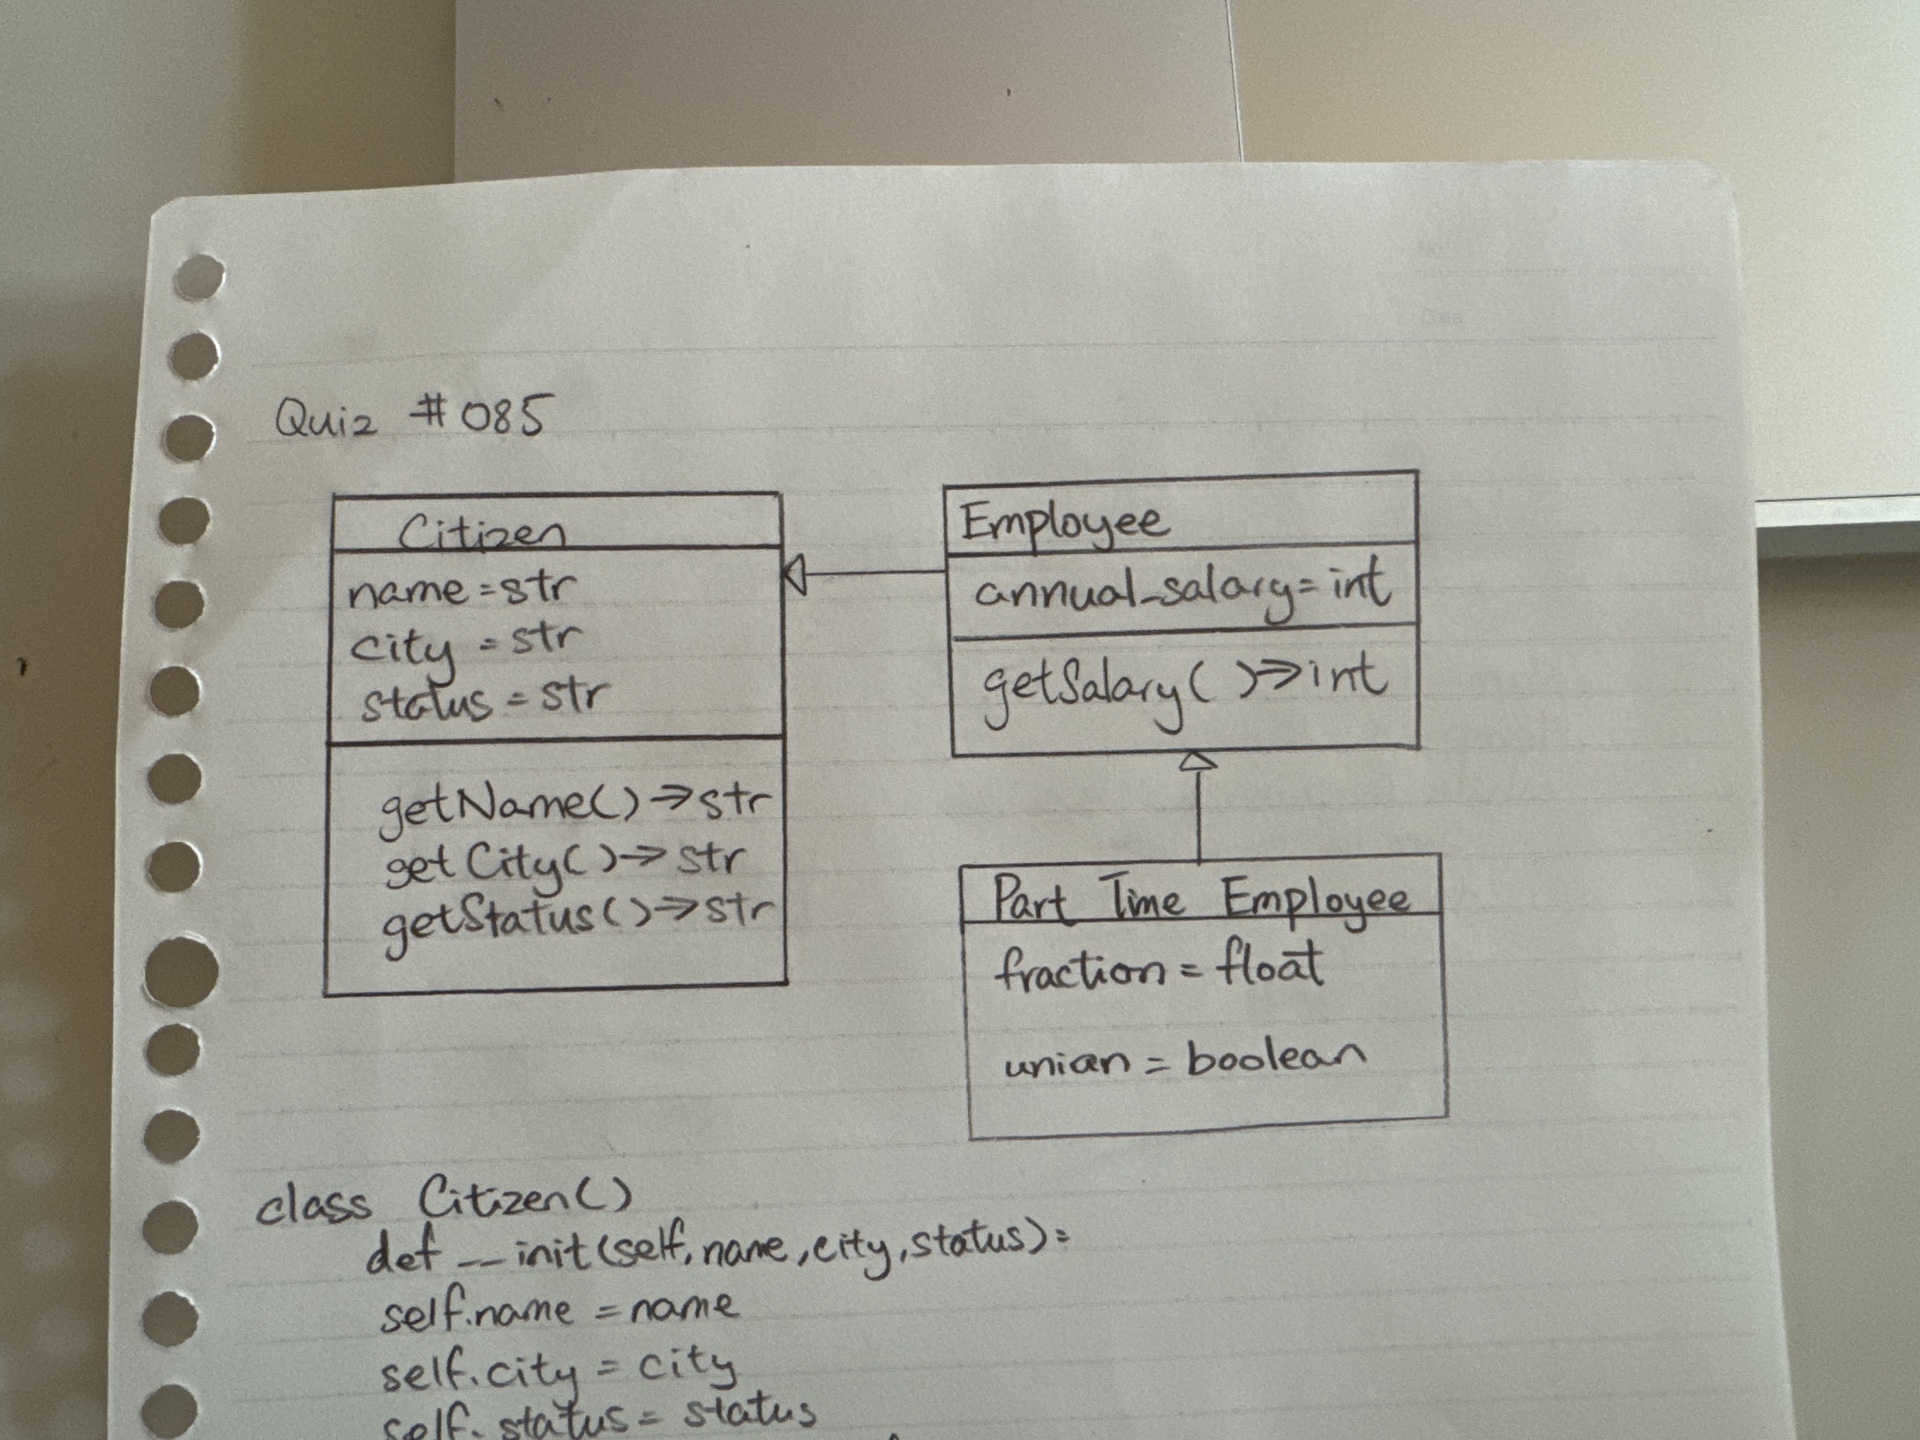 Quiz #085
Citizen
name=str
city=str
status=str
getName()→str
getCity()→str
getStatus()→str
Employee
annual_salary=int
getSalary()→int
Part Time Employee
fraction=float
union=boolean
class Citizen()
def __init(self,name,city,status):
self.name=name
self.city=city
self.status=status